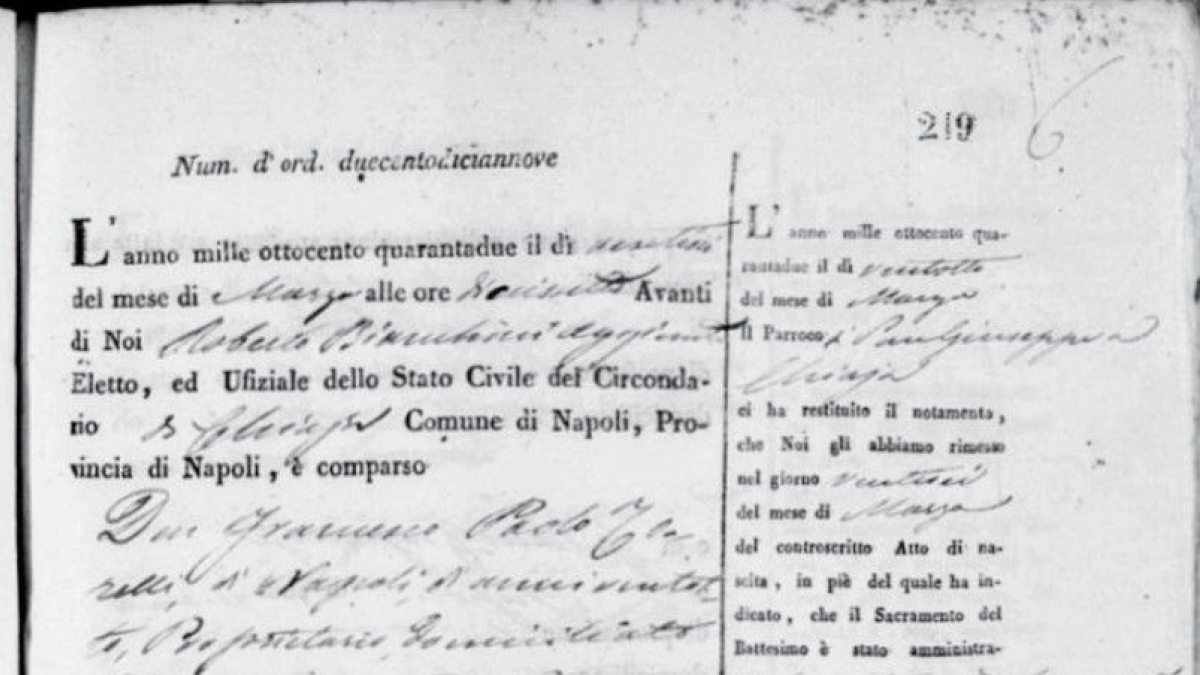 219
6
Num. d' ord. duecentodiciannove
L' anno mille ottocento quarantadue il dì ventisei
del mese di Marzo alle ore Avanti
di Noi Roberto Bianchini Aggiunto
Eletto, ed Ufiziale dello Stato Civile del Circonda-
rio di Chiaja Comune di Napoli, Pro-
vincia di Napoli, è comparso
Don Francesco Paolo
di Napoli, di anni ventot-
to, Proprietario domiciliato
L' anno mille ottocento qua-
rantadue il dì ventotto
del mese di Marzo
Il Parroco di San Giuseppe a
Chiaja
ci ha restituito il notamento,
che Noi gli abbiamo rimesso
nel giorno ventisei
del mese di Marzo
del controscritto Atto di na-
scita, in piè del quale ha in-
dicato, che il Sacramento del
Battesimo è stato amministra-